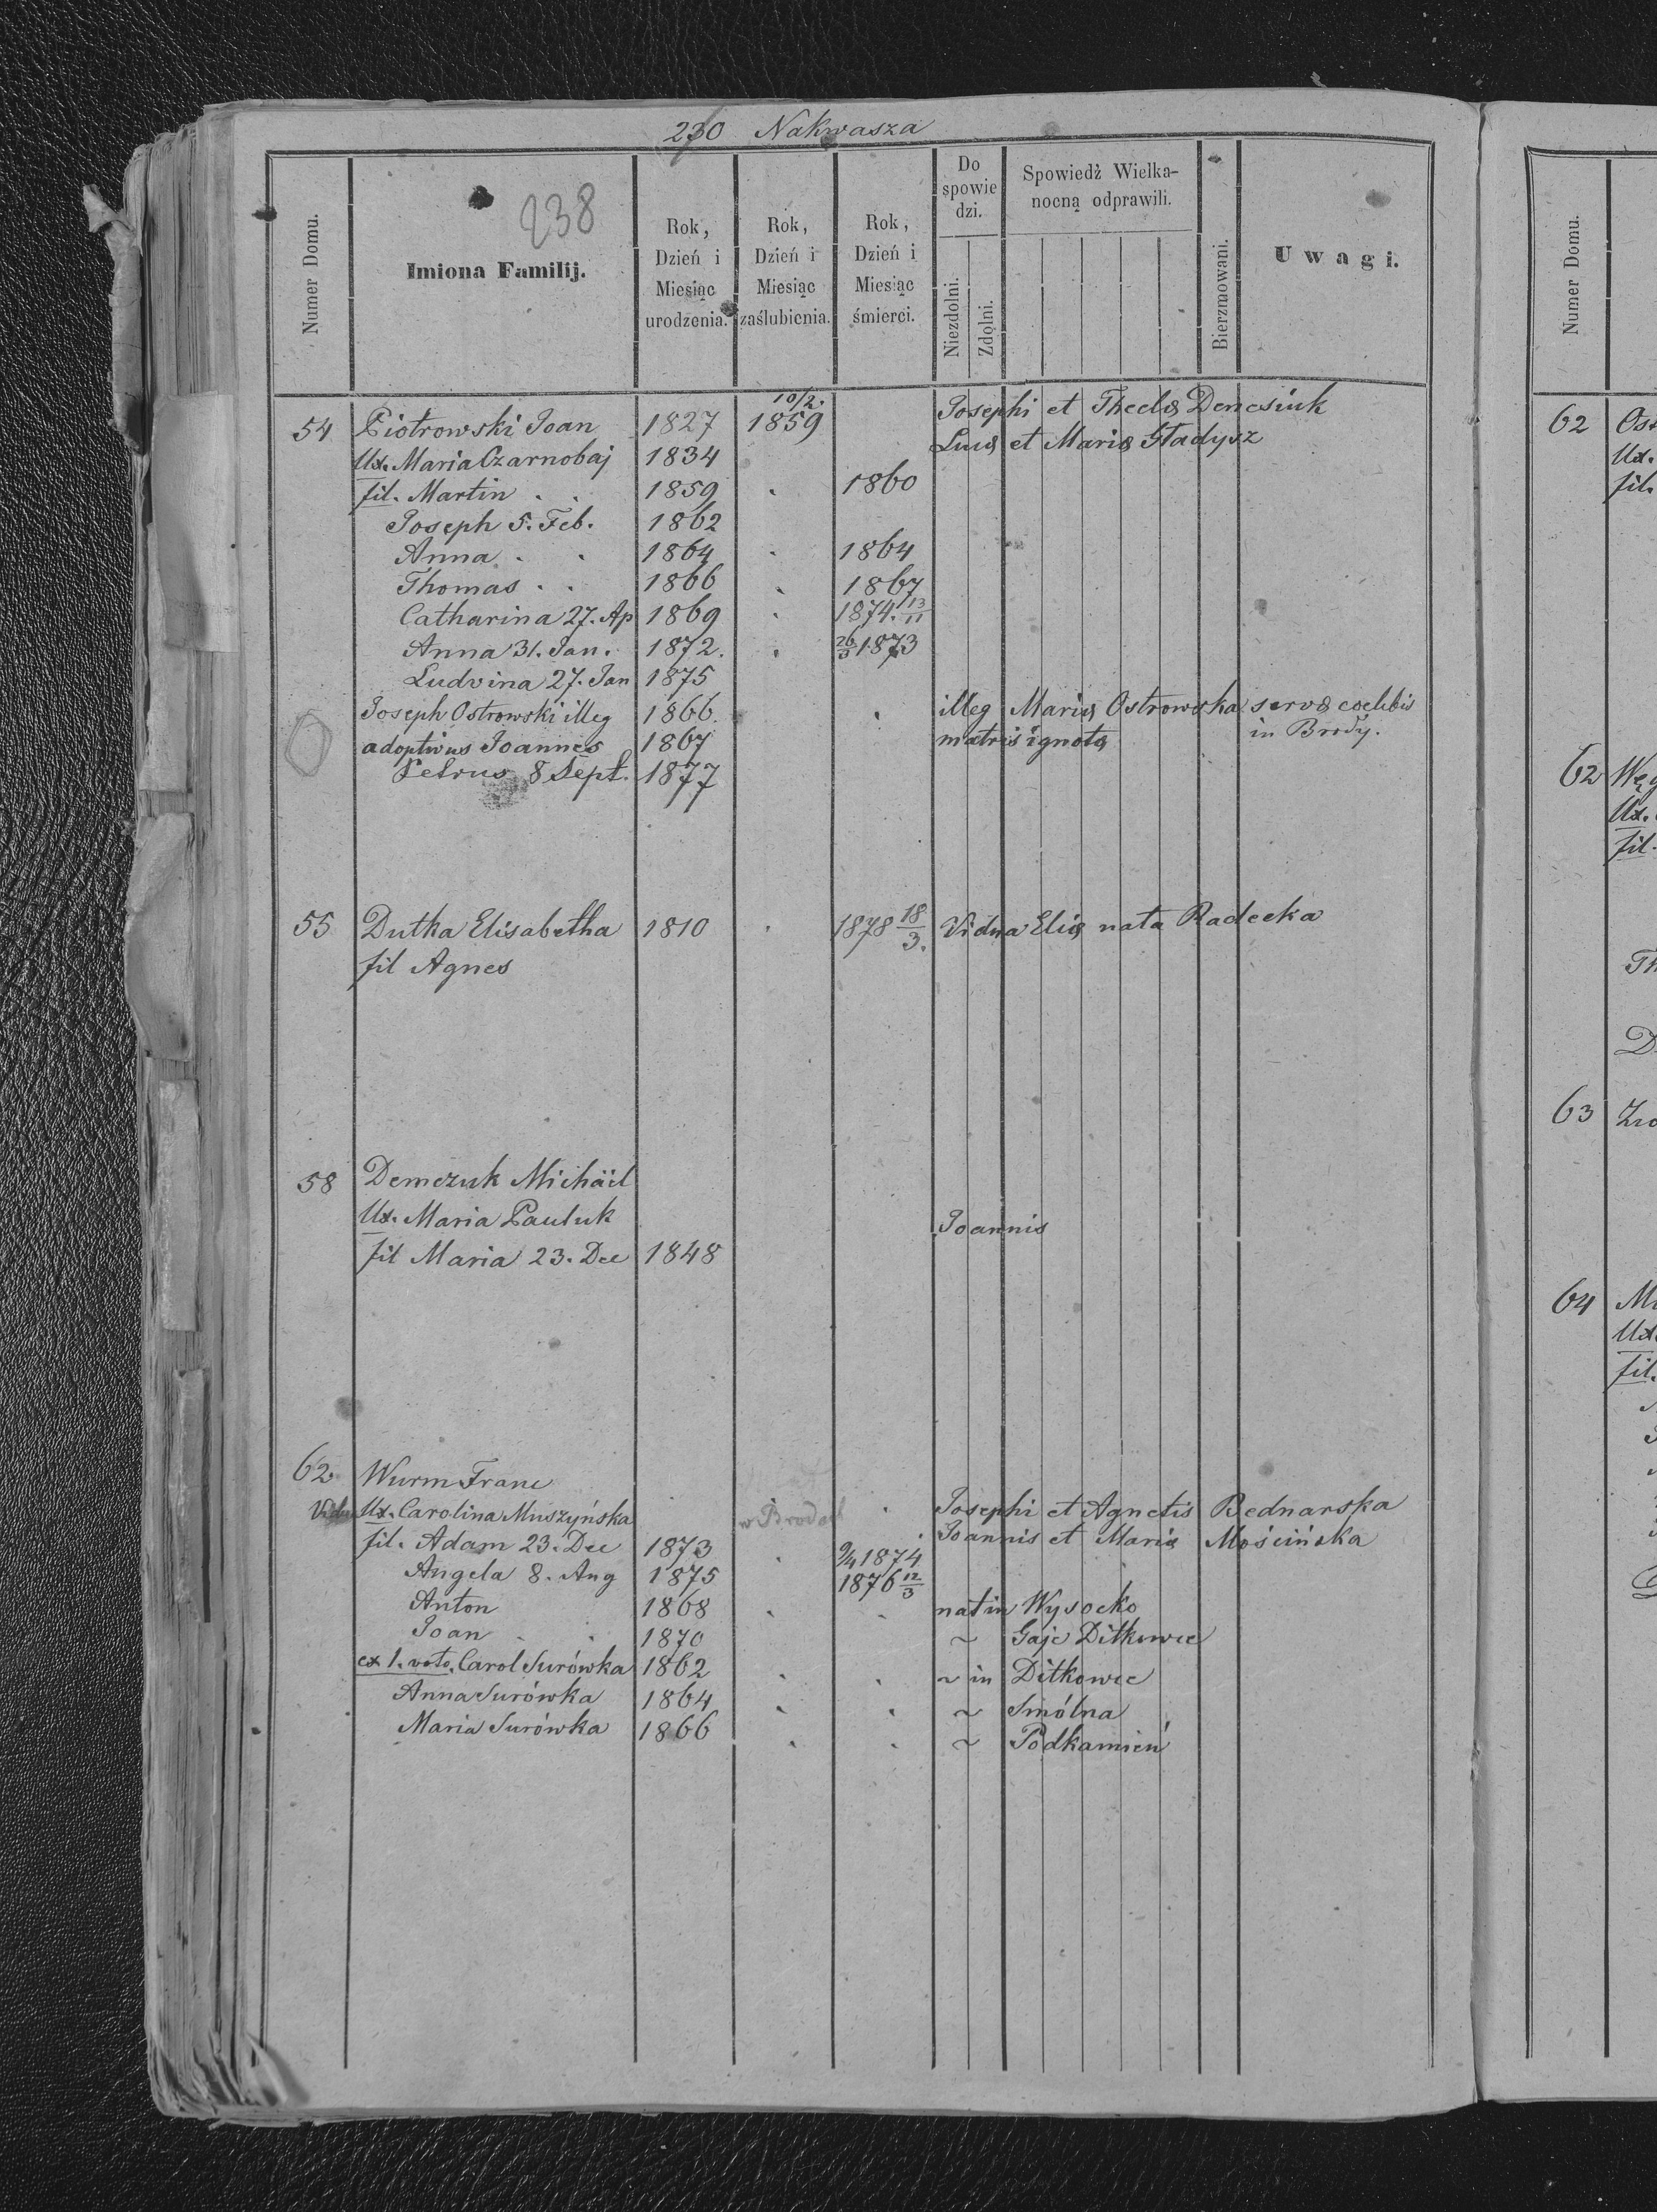 230 Nakwasza
238
Numer Domu.
Imiona Familij.
Rok, Dzień i Miesiąc urodzenia.
Rok, Dzień i Miesiąc zaślubienia.
Rok, Dzień i Miesiąc śmierci.
Do spowie dzi.
Niezdolni.
Zdolni.
Spowiedź Wielka-
nocną odprawili.
Bierzmowani.
Uwagi.
54 Piotrowski Joan 1827 10/2. 1859 Josephi et Theclæ Denesiuk
Ux. Maria Czarnobaj 1834 Lucæ et Mariæ Gładysz
fil. Martin . . 1859 . 1860
Joseph 5. Feb. 1862
Anna . . 1864 . 1864
Thomas . . 1866 . 1867
Catharina 27. Ap 1869 . 1874. 13/11
Anna 31. Jan. 1872. . 26/3 1873
Ludvina 27. Jan 1875
Joseph Ostrowski illeg 1866. . illeg Mariæ Ostrowska servæ coelibis
adoptivus Joannes 1867 matris ignotæ in Brody.
Petrus 8 Sept. 1877
55 Dutka Elisabetha 1810 . 1878 18/3. Vidua Eliæ nata Radecka
fil Agnes
58 Demczuk Michäil
Ux. Maria Pauluk Joannis
fil Maria 23. Dec 1848
62 Wurm Franc
Vidua Ux. Carolina Muszyńska w Brodach . Josephi et Agnetis Bednarska
fil. Adam 23. Dec 1873 . 9/4 1874 Joannis et Mariæ Mościńska
Angela 8. Aug 1875 1876 12/3
Anton 1868 . . nat in Wysocko
Joan . . 1870 ~ Gaje Ditkowce
ex 1. voto. Carol Surówka 1862 . . ~ in Ditkowce
Anna Surówka 1864 . . ~ Smólna
Maria Surówka 1866 . . ~ Podkamień
Numer Domu.
62
Ux.
fil.
62
Ux.
fil.
63
64
Ux.
fil.